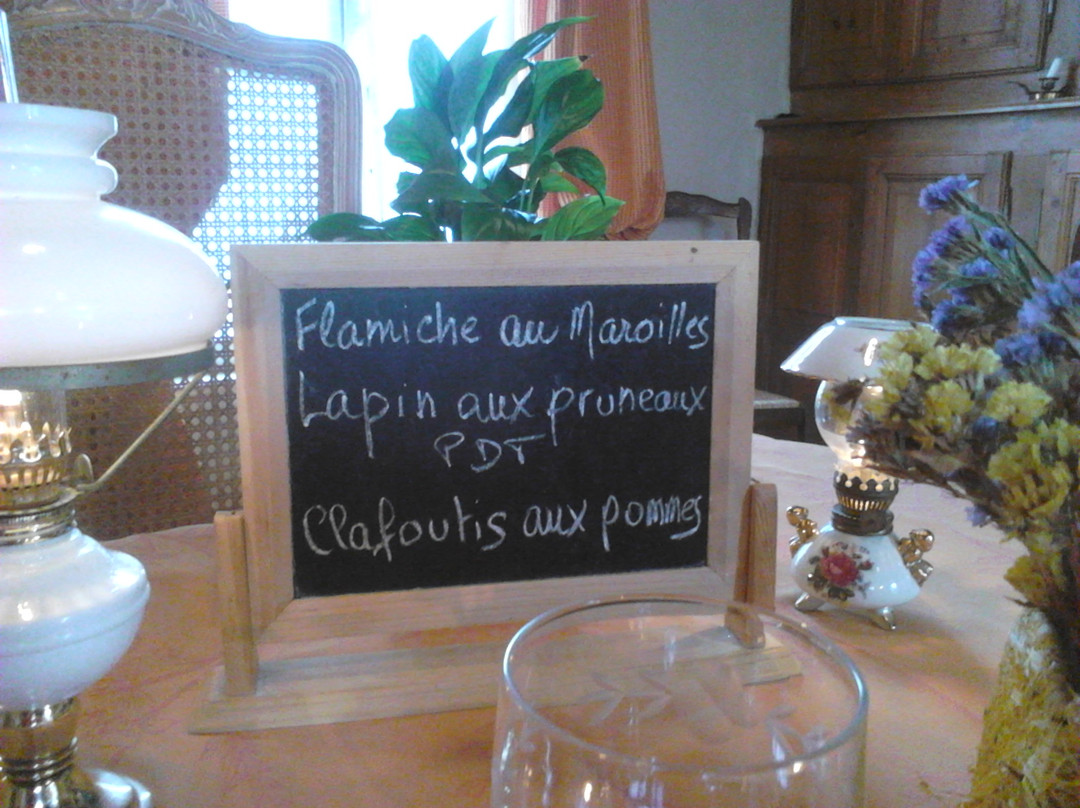 Flamiche au Maroilles
Lapin aux pruneaux
PDT
Clafoutis aux pommes